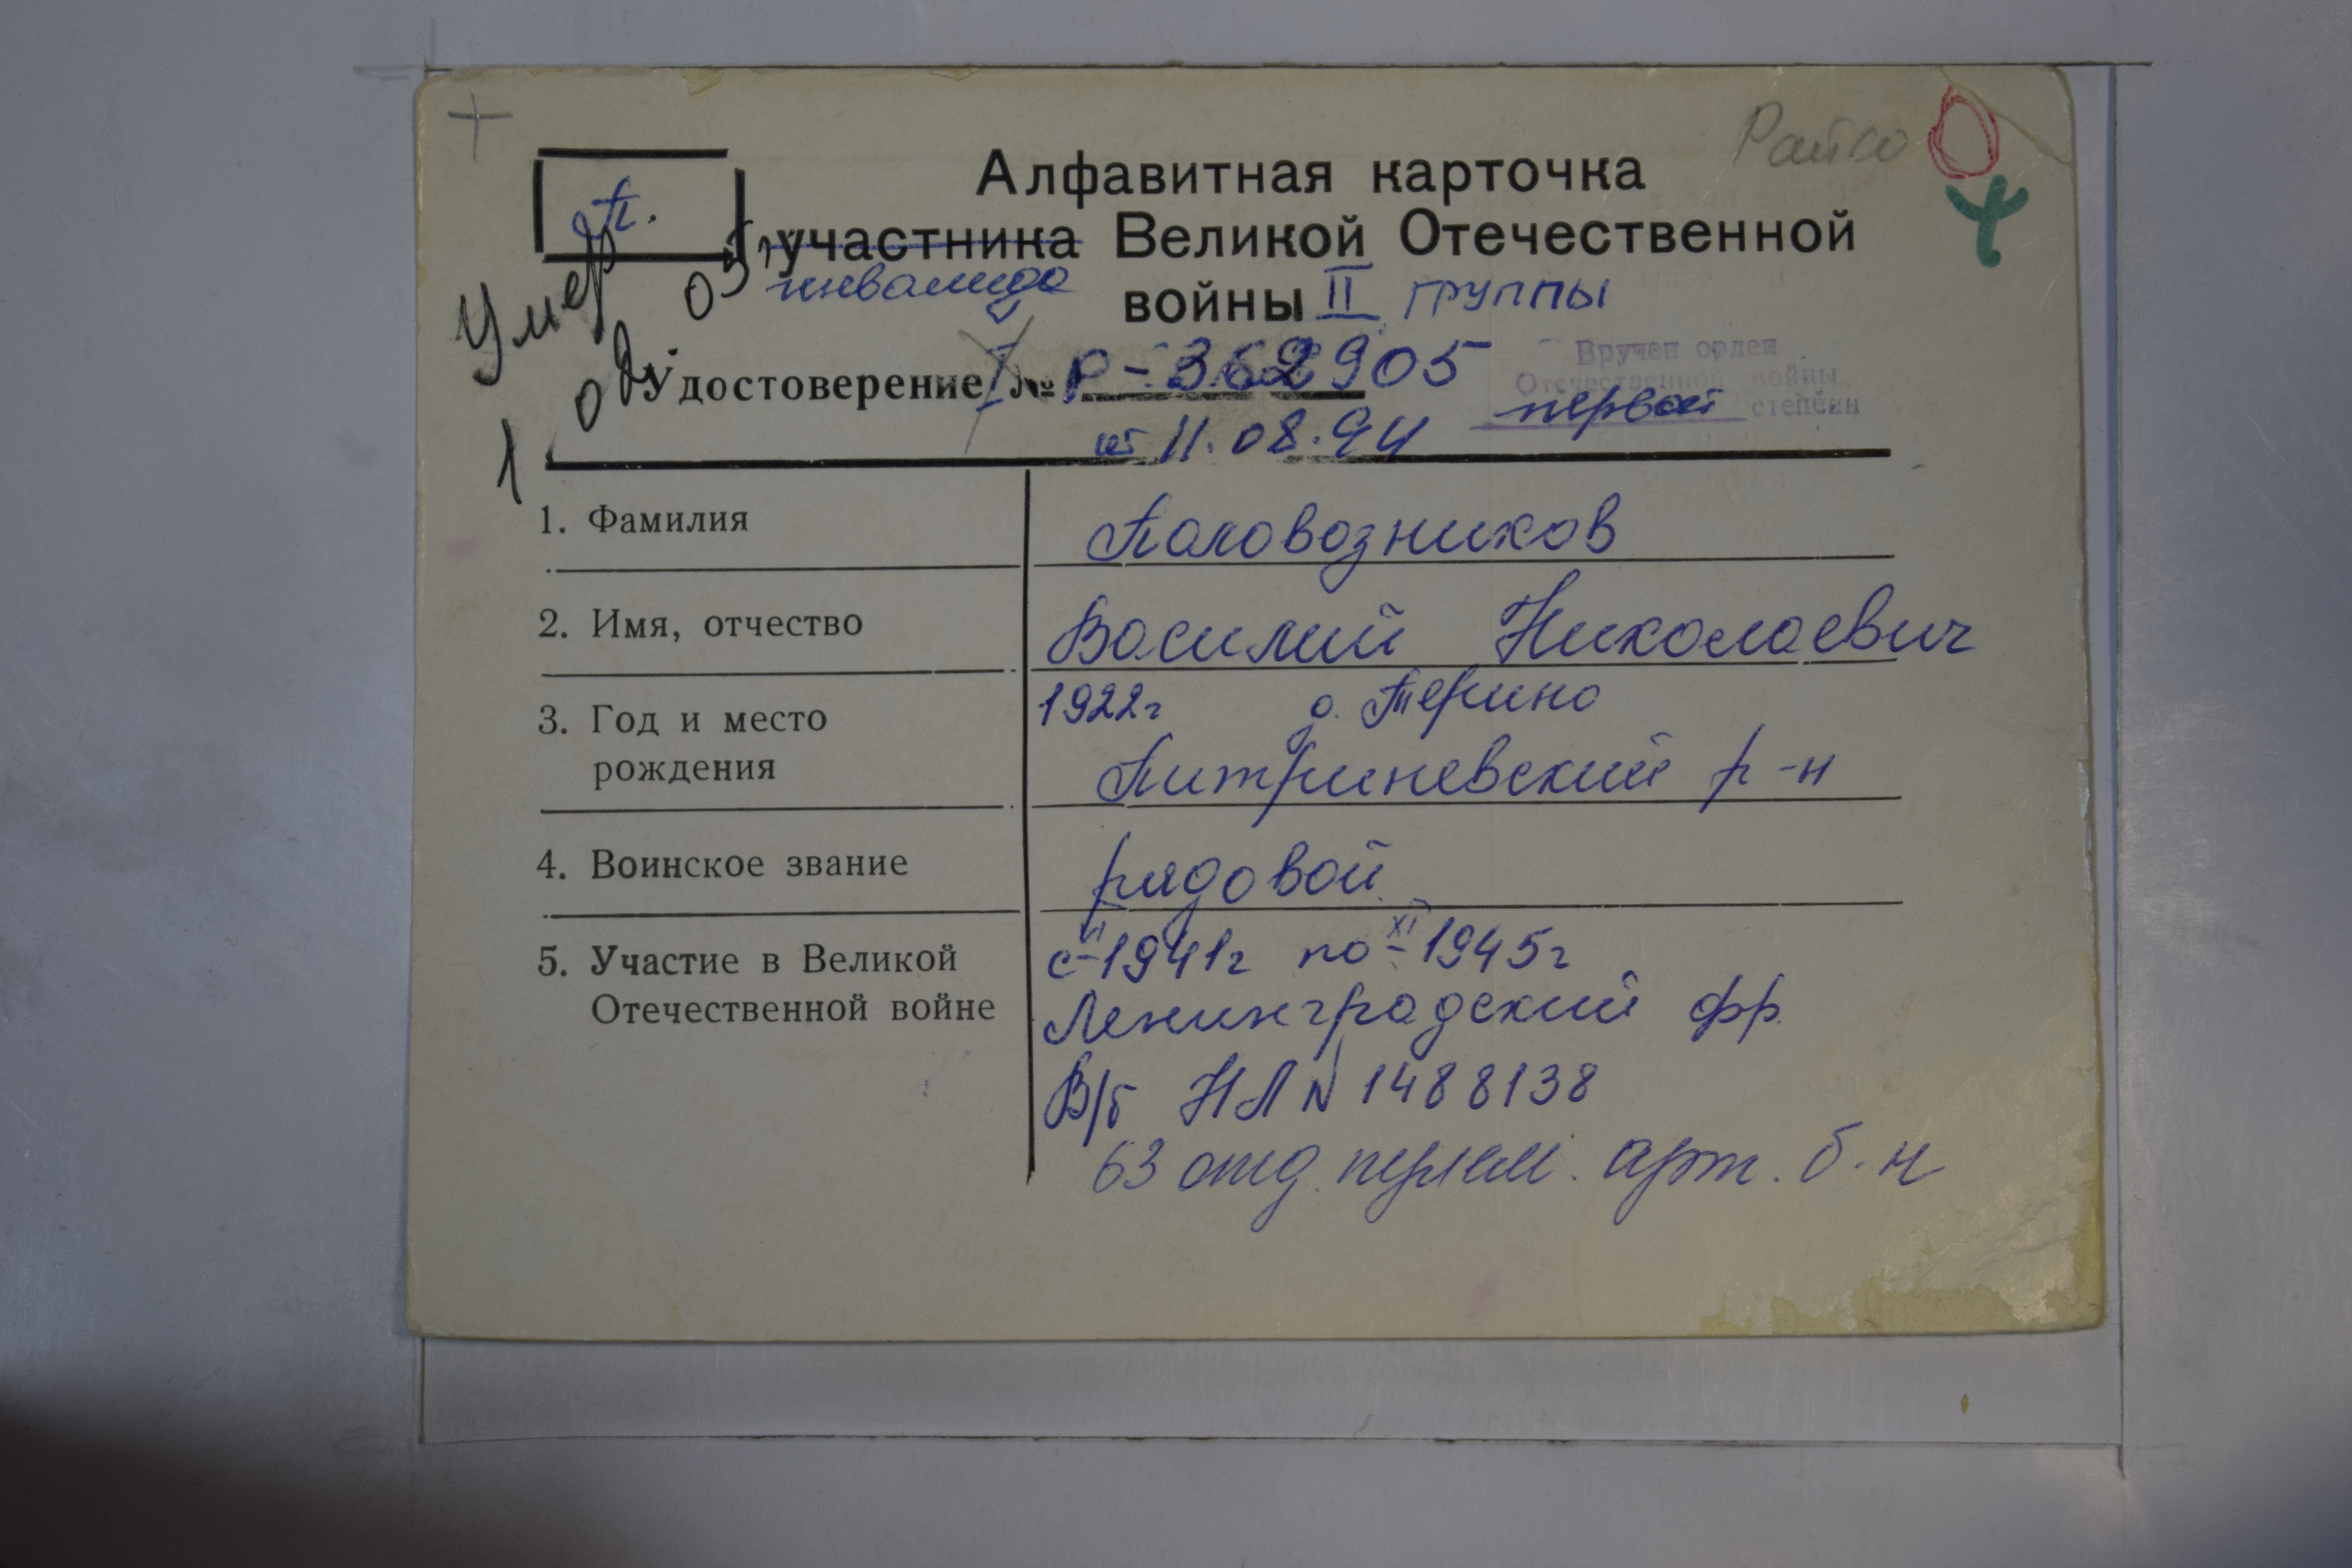 Райсо
П.
Алфавитная карточка
участника Великой Отечественной
инвалида
войны II группы
Умер
Удостоверение I № Р-362905
от 11.08.94
Вручен орден
Отечественной войны
первой степени
1. Фамилия
Половозников
2. Имя, отчество
Василий Николаевич
3. Год и место
рождения
1922г д. Терино
Питриневский р-н
4. Воинское звание
рядовой
5. Участие в Великой
Отечественной войне
с 1941г по XI-1945г
Ленинградский фр.
В/б НЛ N 1488138
63 отд. пулем. арт. б-н